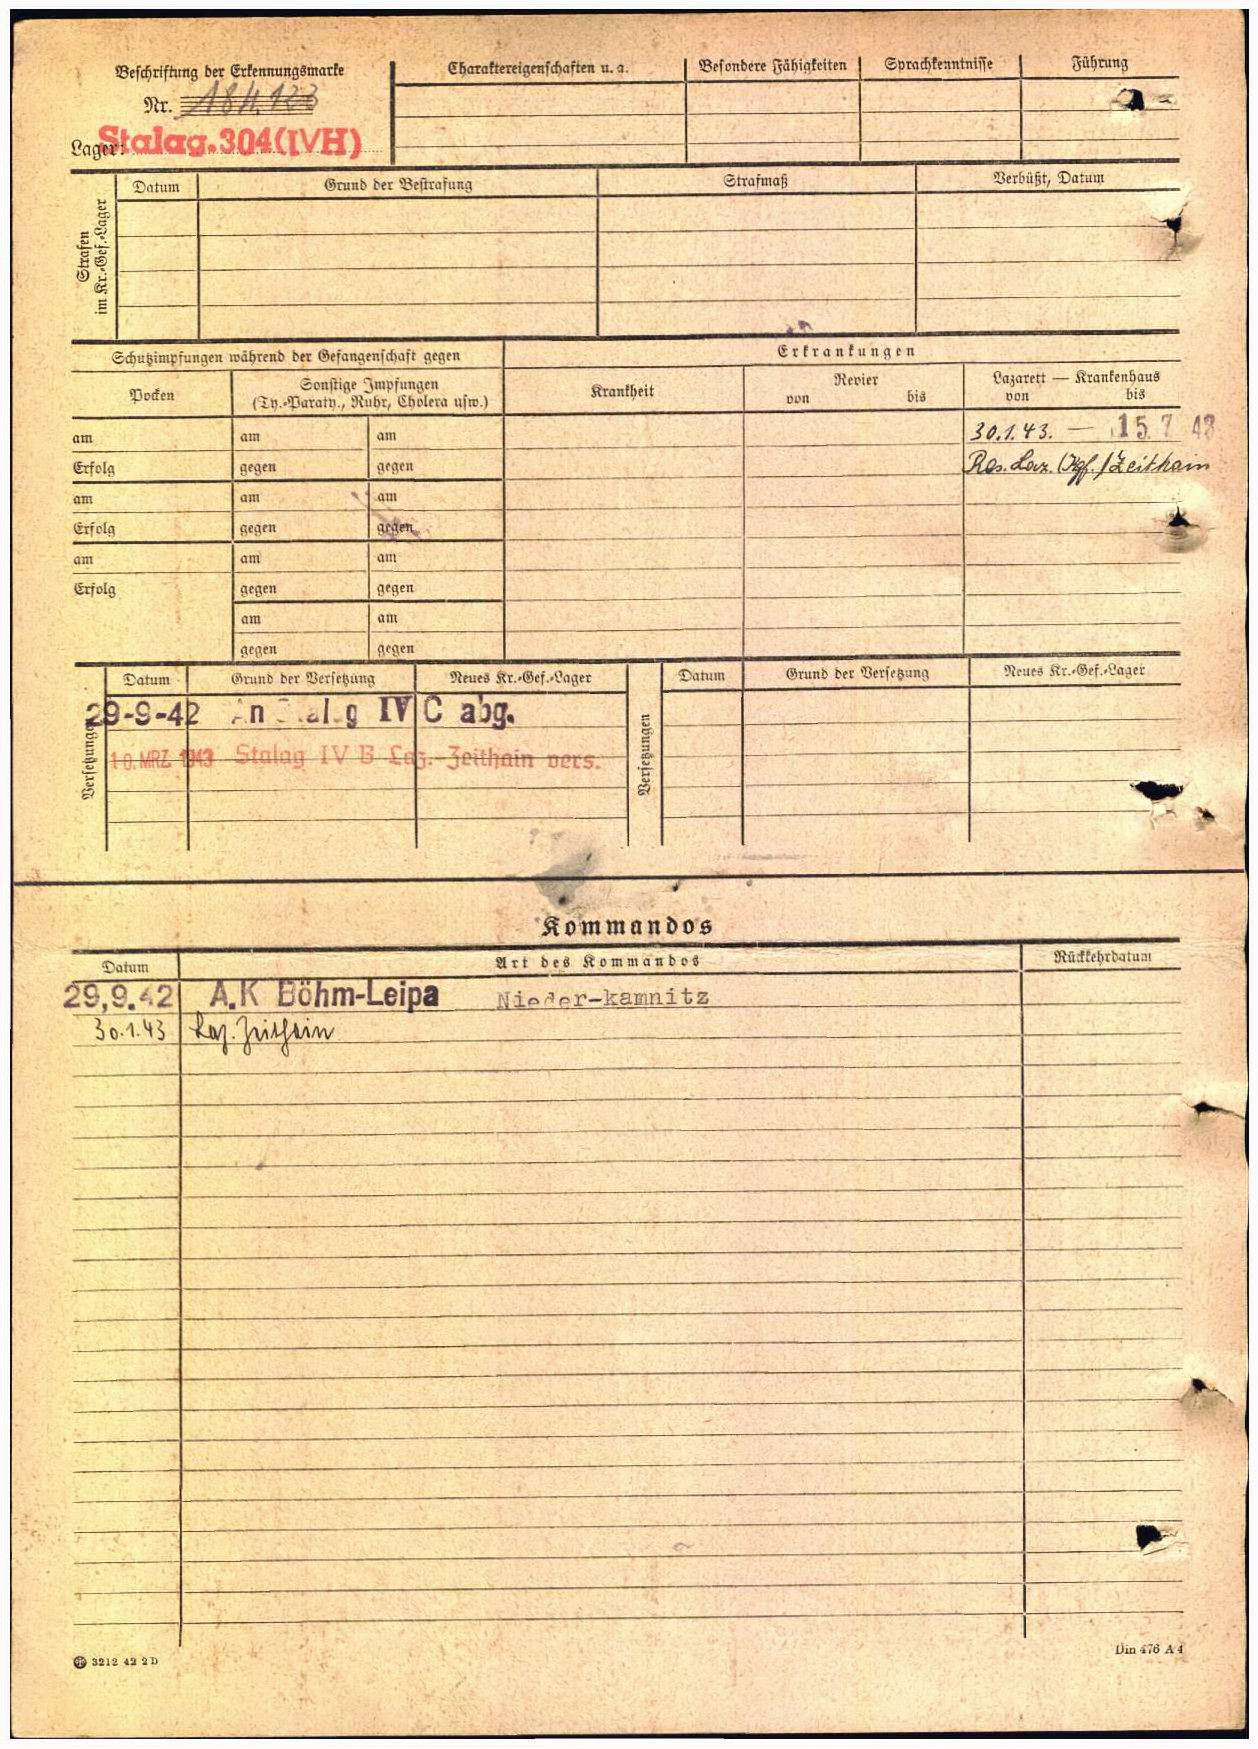 Beschriftung der Erkennungsmarke
Nr. 184.123
Lager: Stalag.304(IVH)
Charaktereigenschaften u. a.
Besondere Fähigkeiten
Sprachkenntnisse
Führung
Strafen
im Kr.-Gef.-Lager
Datum
Grund der Bestrafung
Strafmaß
Verbüßt, Datum
Schutzimpfungen während der Gefangenschaft gegen
Erkrankungen
Pocken
Sonstige Impfungen
(Ty.-Paraty., Ruhr, Cholera usw.)
Krankheit
Revier
von bis
Lazarett — Krankenhaus
von bis
am am am
30.1.43. — 15.7 43
Erfolg gegen gegen
Res. Laz. (Kgf.) Zeithain
am am am
Erfolg gegen gegen
am am am
Erfolg gegen gegen
am am
gegen gegen
Versetzungen
Datum Grund der Versetzung Neues Kr.-Gef.-Lager
29-9-42 An Stalag IV C abg.
10. MRZ. 1943 Stalag IV B Laz.-Zeithain vers.
Versetzungen
Datum Grund der Versetzung Neues Kr.-Gef.-Lager
Kommandos
Datum Art des Kommandos Rückkehrdatum
29.9.42 A.K Böhm-Leipa Nieder-kamnitz
30.1.43 Laz. Zeithain
3212 42 2D
Din 476 A4